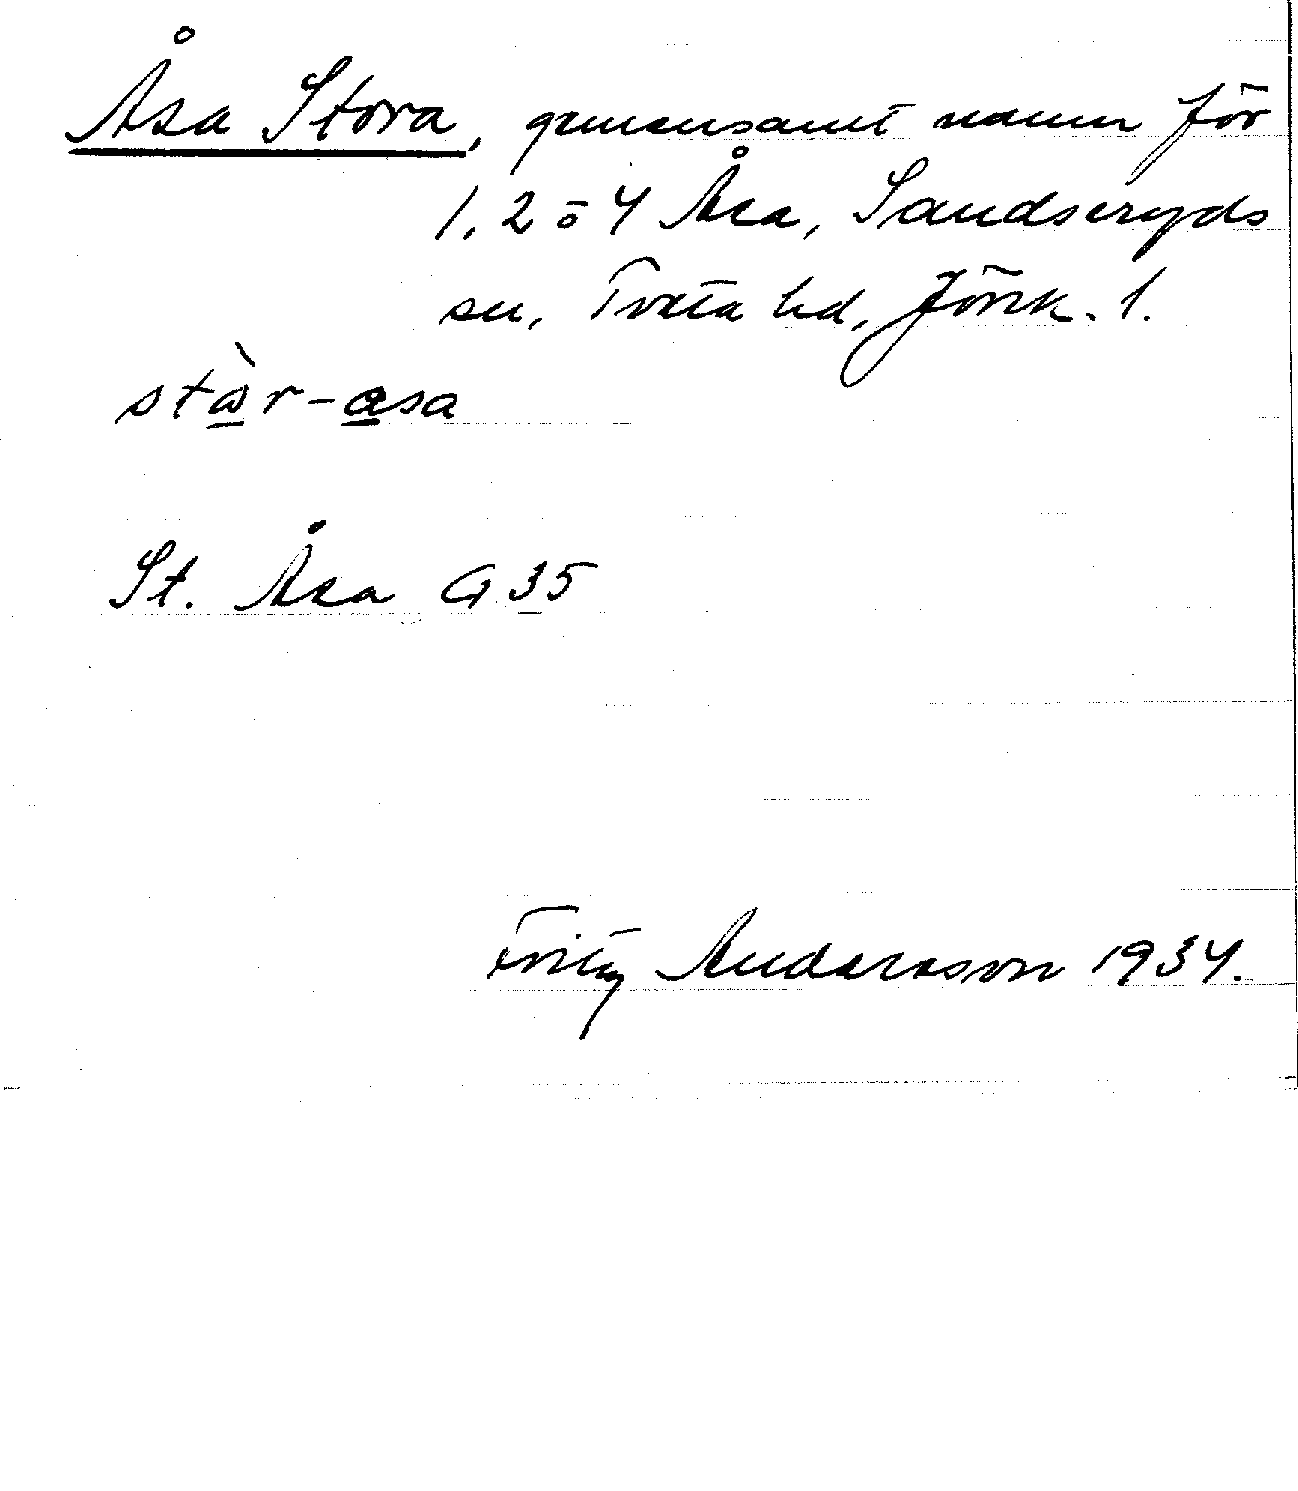 Åsa Stora, gemensamt namn för
1, 2 o 4 Åsa, Sandseryds
sn, Tveta hd, Jönk. l.
stὼ̠r-a̠sa
St. Åsa G 35
Fritz Andersson 1934.